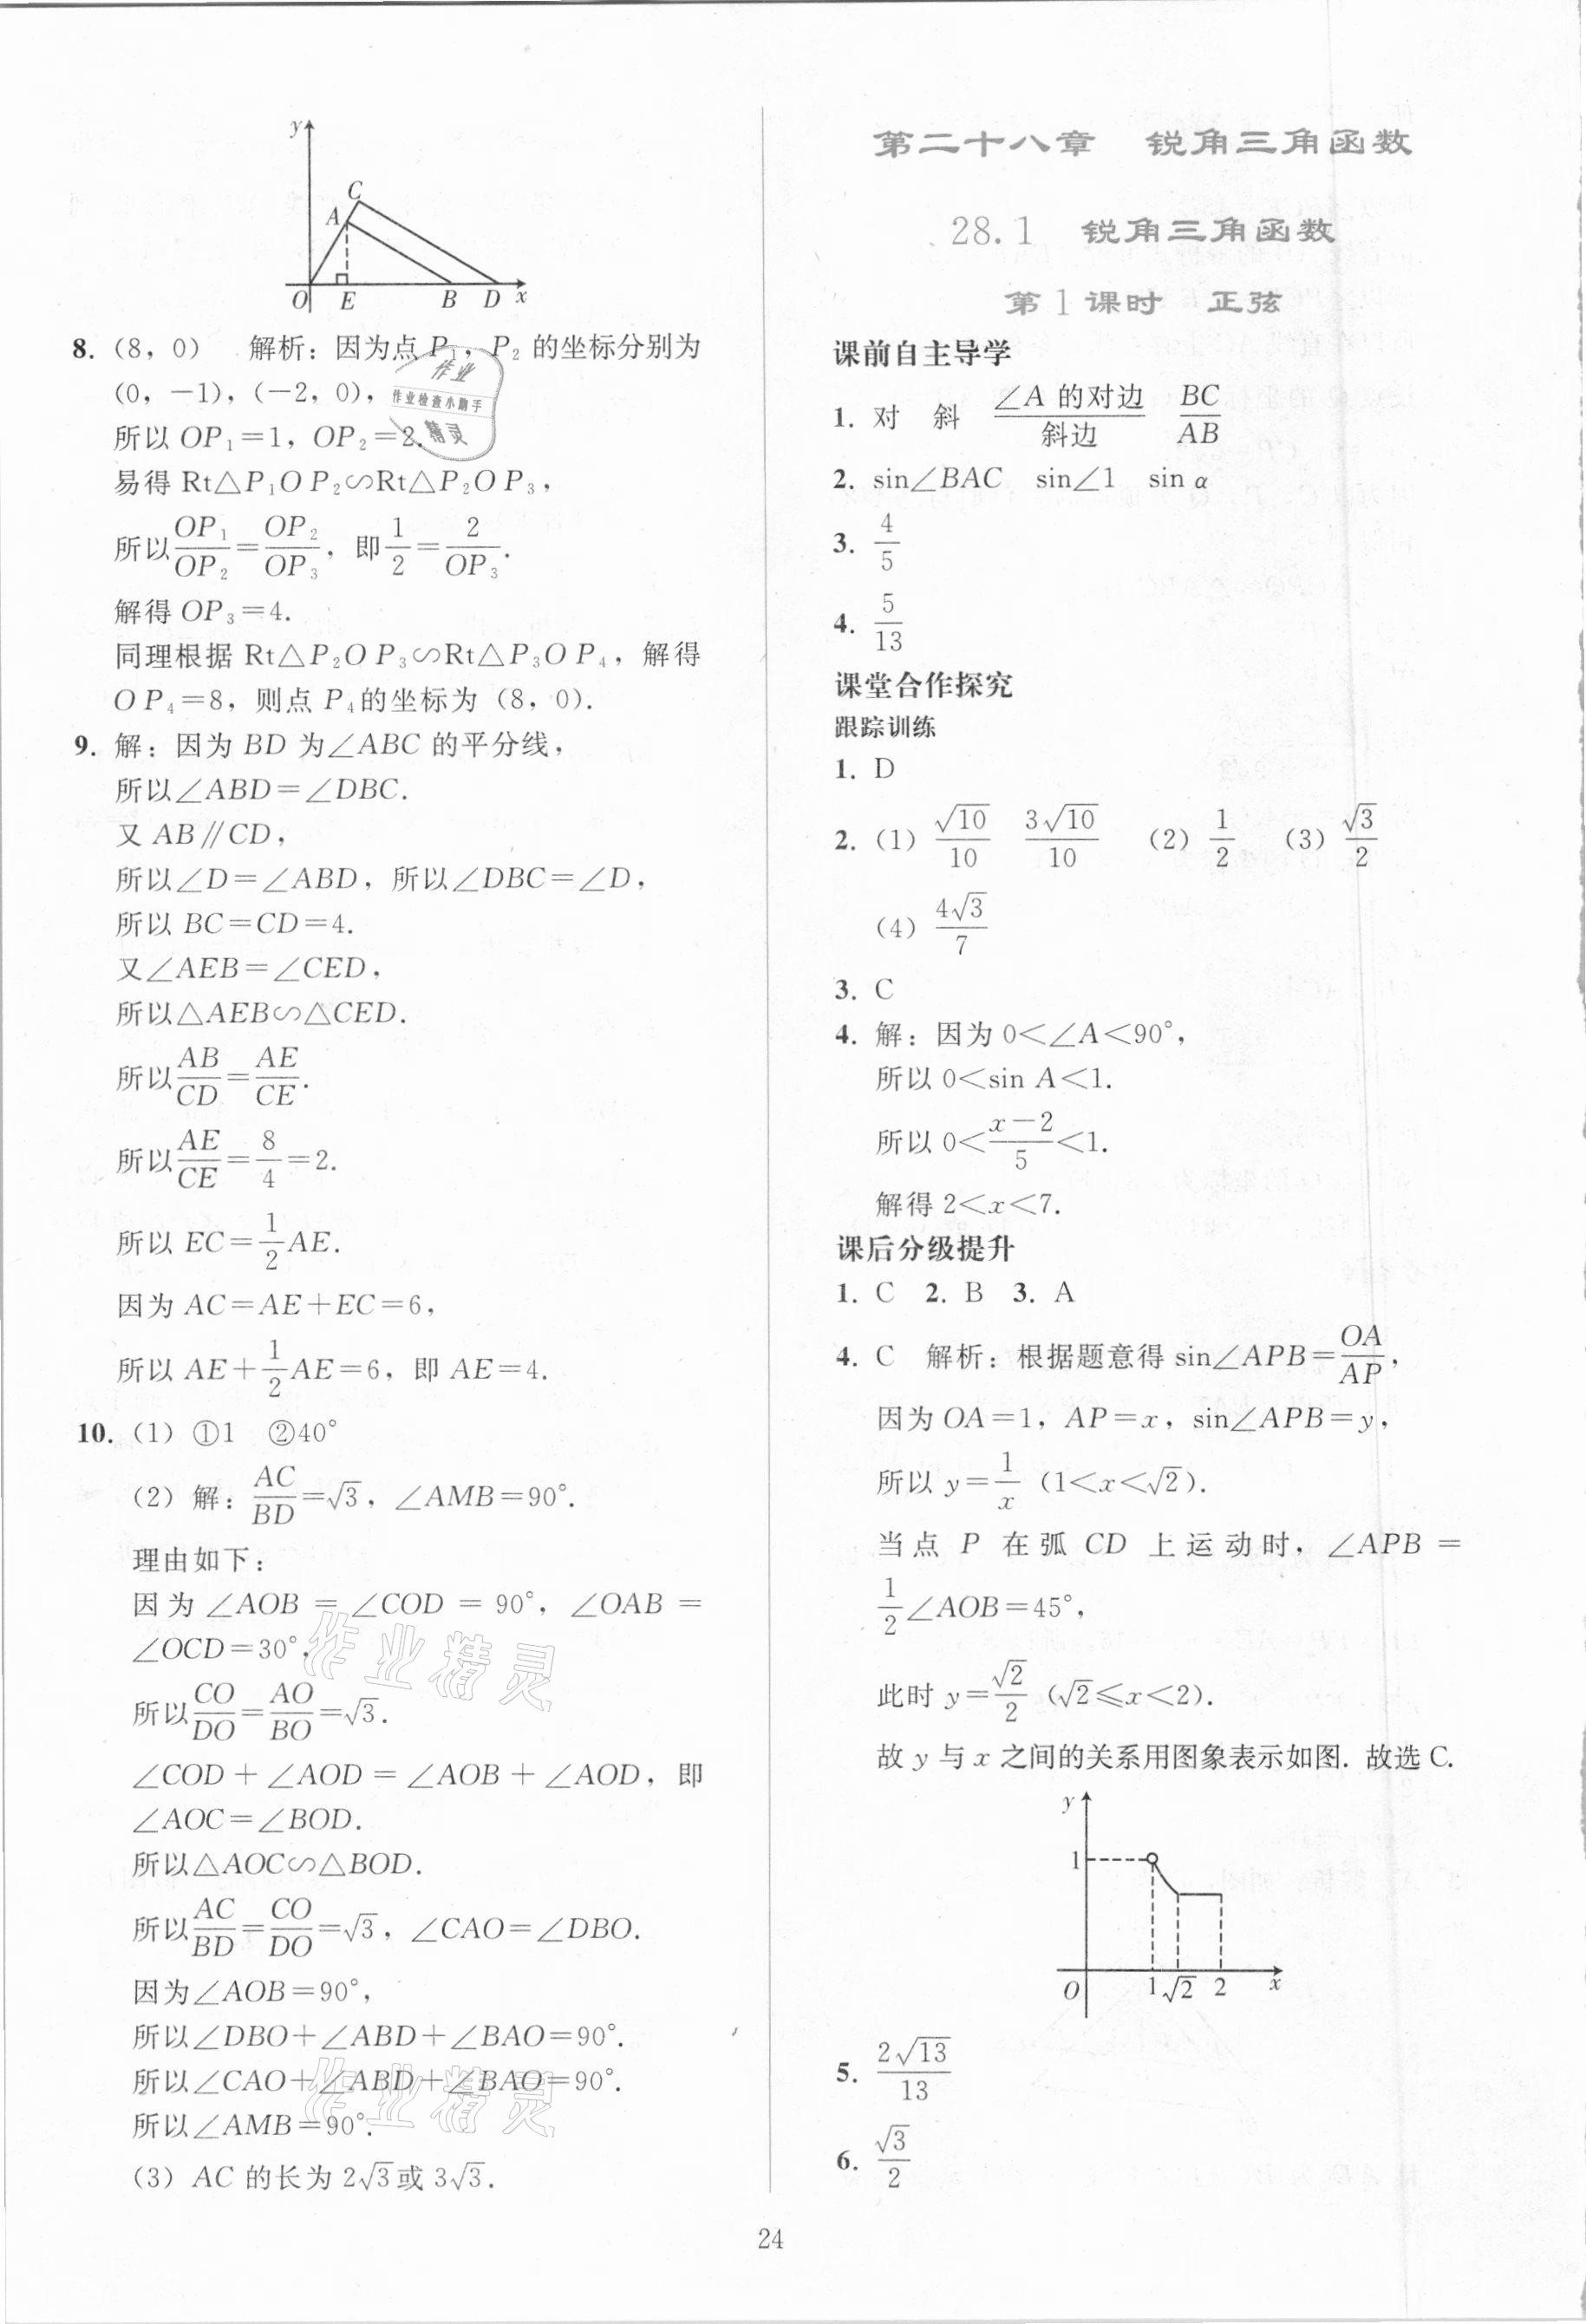 y
C
A
O E B D x
8. (8，0)　解析：因为点 P₁，P₂ 的坐标分别为
(0，－1)，(－2，0)，
所以 OP₁＝1，OP₂＝2.
易得 Rt△P₁OP₂∽Rt△P₂OP₃，
所以 OP₁/OP₂＝OP₂/OP₃，即 1/2＝2/OP₃.
解得 OP₃＝4.
同理根据 Rt△P₂OP₃∽Rt△P₃OP₄，解得
OP₄＝8，则点 P₄的坐标为（8，0）.
9. 解：因为 BD 为∠ABC 的平分线，
所以∠ABD＝∠DBC.
又 AB∥CD，
所以∠D＝∠ABD，所以∠DBC＝∠D，
所以 BC＝CD＝4.
又∠AEB＝∠CED，
所以△AEB∽△CED.
所以 AB/CD＝AE/CE.
所以 AE/CE＝8/4＝2.
所以 EC＝1/2 AE.
因为 AC＝AE＋EC＝6，
所以 AE＋1/2 AE＝6，即 AE＝4.
10.（1）①1　②40°
（2）解：AC/BD＝√3，∠AMB＝90°.
理由如下：
因为∠AOB＝∠COD＝90°，∠OAB＝
∠OCD＝30°，
所以 CO/DO＝AO/BO＝√3.
∠COD＋∠AOD＝∠AOB＋∠AOD，即
∠AOC＝∠BOD.
所以△AOC∽△BOD.
所以 AC/BD＝CO/DO＝√3，∠CAO＝∠DBO.
因为∠AOB＝90°，
所以∠DBO＋∠ABD＋∠BAO＝90°.
所以∠CAO＋∠ABD＋∠BAO＝90°.
所以∠AMB＝90°.
（3）AC 的长为 2√3或 3√3.
第二十八章　锐角三角函数
28.1　锐角三角函数
第 1 课时　正弦
课前自主导学
1. 对　斜　∠A 的对边/斜边　BC/AB
2. sin∠BAC　sin∠1　sin α
3. 4/5
4. 5/13
课堂合作探究
跟踪训练
1. D
2.（1）√10/10　3√10/10　（2）1/2　（3）√3/2
（4）4√3/7
3. C
4. 解：因为 0＜∠A＜90°，
所以 0＜sin A＜1.
所以 0＜(x－2)/5＜1.
解得 2＜x＜7.
课后分级提升
1. C　2. B　3. A
4. C　解析：根据题意得 sin∠APB＝OA/AP，
因为 OA＝1，AP＝x，sin∠APB＝y，
所以 y＝1/x（1＜x＜√2）.
当点 P 在弧 CD 上运动时，∠APB＝
1/2∠AOB＝45°，
此时 y＝√2/2（√2≤x＜2）.
故 y 与 x 之间的关系用图象表示如图. 故选 C.
y
1
O 1 √2 2 x
5. 2√13/13
6. √3/2
24
作业
作业检查小助手
精灵
作业精灵
作业精灵